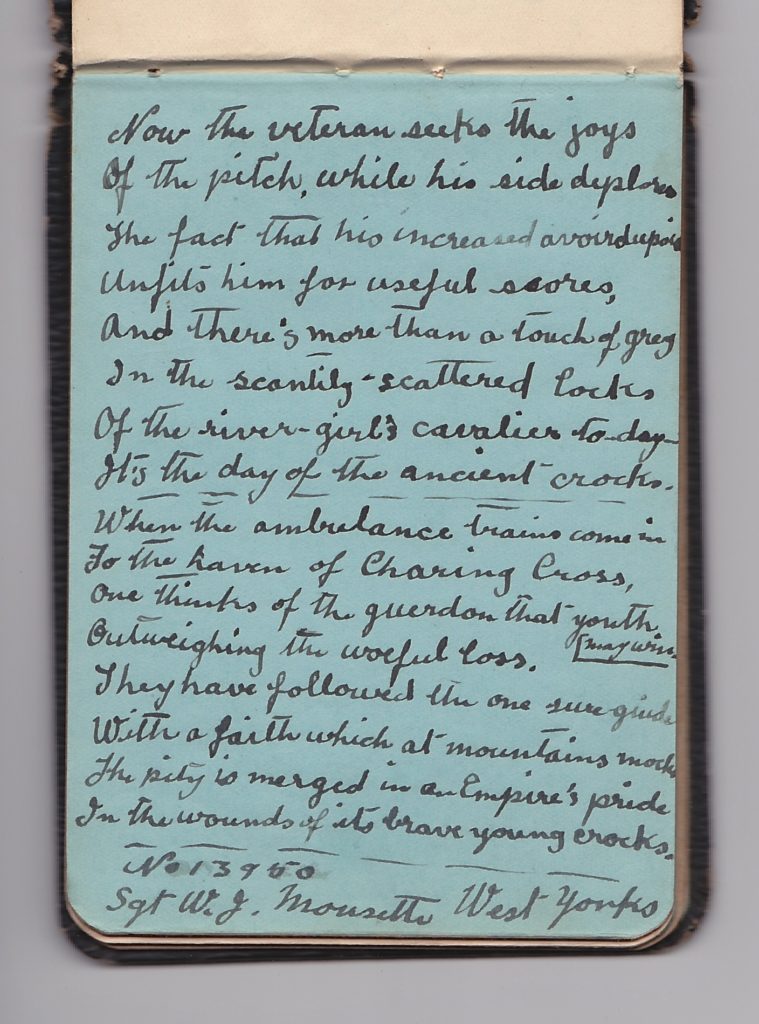 Now the veteran seeks the joys
Of the pitch, while his side deplores
The fact that his increased avoirdupois
Unfits him for useful scores,
And there's more than a touch of grey
In the scantily-scattered locks
Of the river-girl's cavalier to-day—
It's the day of the ancient crocks.
When the ambulance trains come in
To the haven of Charing Cross,
One thinks of the guerdon that youth
[may win.
Outweighing the woeful loss.
They have followed the one sure guide
With a faith which at mountains mocks
The pity is merged in an Empire's pride
In the wounds of its brave young crocks.
No 13950
Sgt W. J. West Yorks